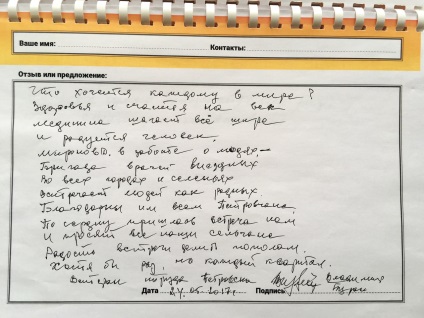 Ваше имя: Контакты:
Отзыв или предложение:
Что хочется каждому в мире?
Здоровья и счастья на век
Медицина шагает всё шире
и радуется человек.
в заботе о людях,-
Бригада врачей выездных
Во всех городах и селеньях
Встречает людей как родных
Благодарны им всем Петровчане
По сердцу пришлась встреча нам
И просят все наши сельчане
Радость встречи пополам.
Хотя бы раз, но каждый квартал.
Ветеран труда Петровска
Дата 24.05.2017г. Подпись